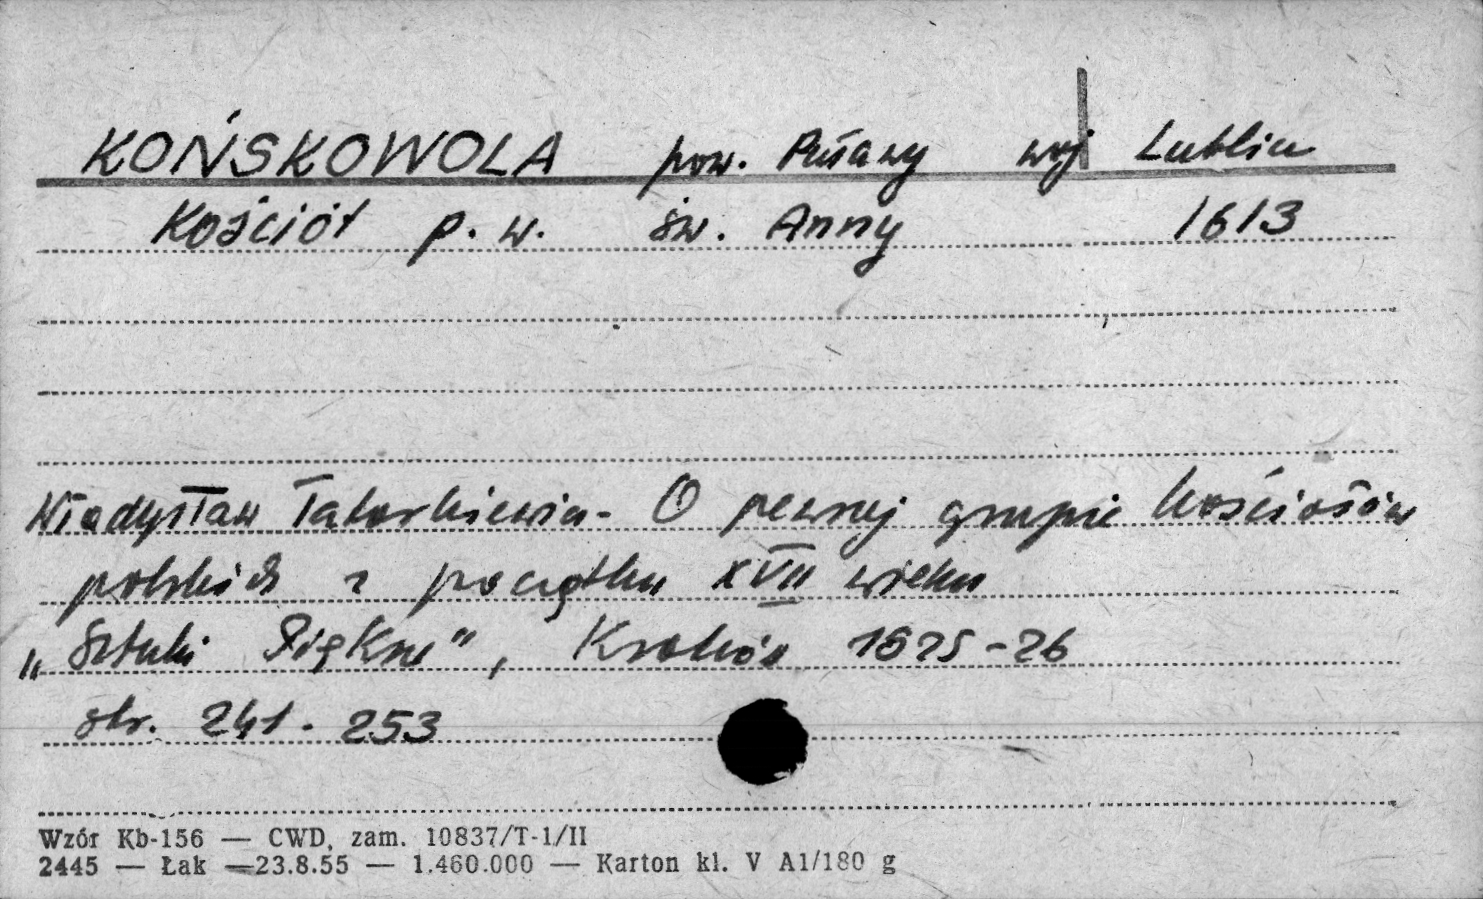 KOŃSKOWOLA pow. Puławy woj Lublin
Kościół p.w. św. Anny 1613
Władysław Tatarkiewicz - O pewnej grupie kościołów
polskich z początku XVII wieku
„Sztuki Piękne", Kraków 1925-26
str. 241-253
Wzór Kb-156 — CWD, zam. 10837/T-1/II
2445 — Łak — 23.8.55 — 1.460.000 — Karton kl. V A1/180 g